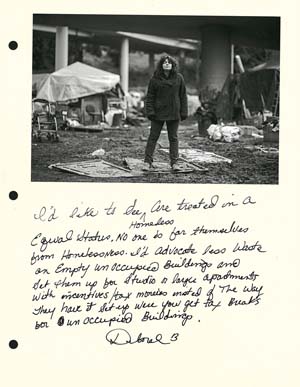 I'd like to see are treated in a
Homeless
Equal States, No one is for themselves
from Homelessness. I'd Advocate less Waste
on Empty unoccupied Buildings and
Set them up for Studio n large apartments
With incentives tax moneies insted of The Way
They have it set up were you get tax Breaks
for unoccupied Buildings.
Deborah B